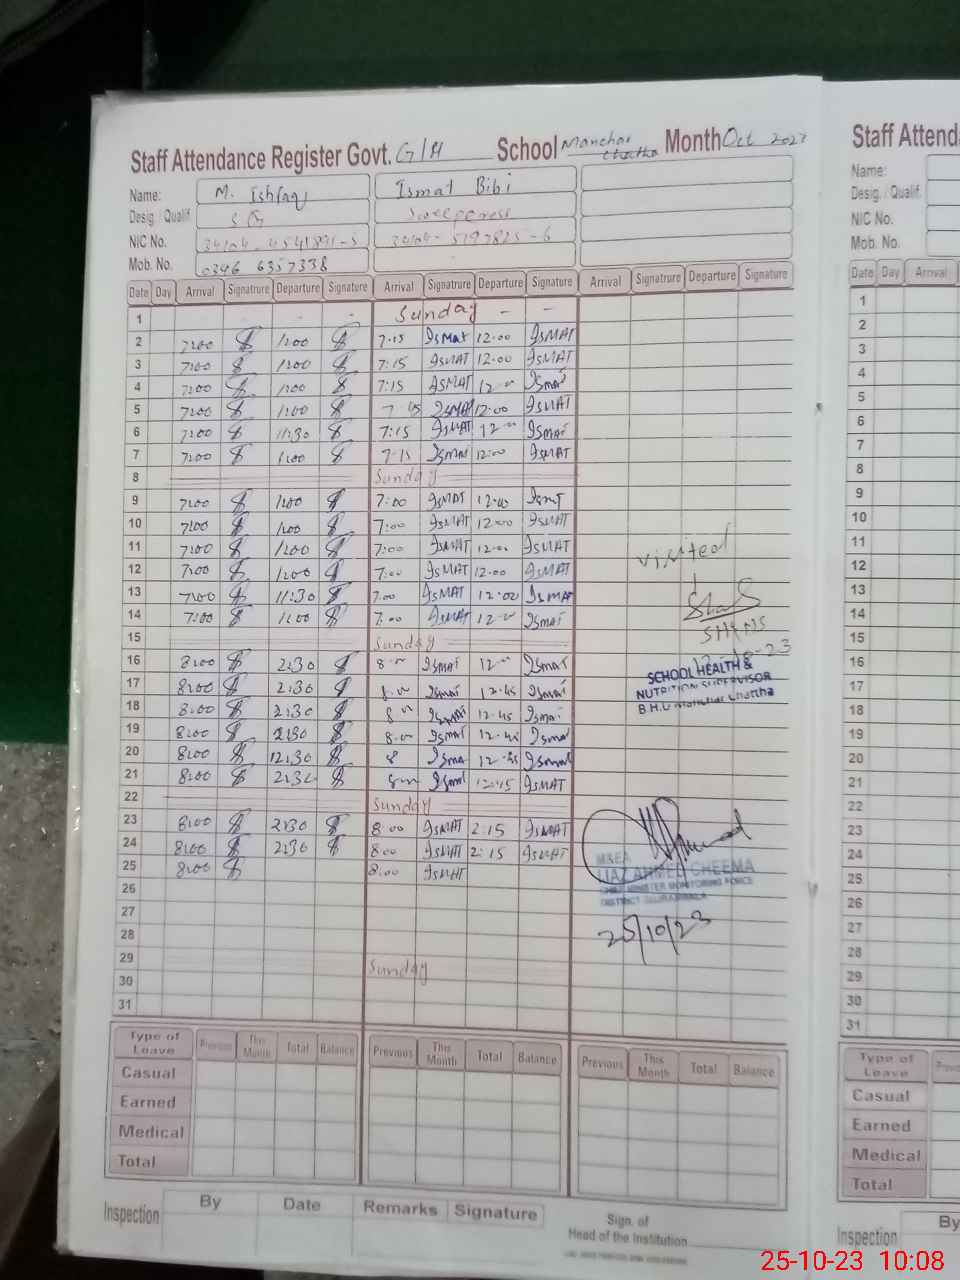 Staff Attendance Register Govt. G/H School Manchar Chatha Month Oct 2023
Name: M. Ishfaq Ismat Bibi
Desig. / Qualif. Sweeperess
NIC No. 34104-4541891-5 34104-5197825-6
Mob. No. 0346 6357338
Date Day Arrival Signatrure Departure Signature Arrival Signatrure Departure Signature Arrival Signatrure Departure Signature
1 Sunday - -
2 7:00 1:00 7:15 Ismat 12:00 IsMAT
3 7:00 1:00 7:15 IsMAT 12:00 IsMAT
4 7:00 1:00 7:15 IsMAT 12:00 Ismat
5 7:00 1:00 7 15 IsMAT 12:00 IsMAT
6 7:00 11:30 7:15 IsMAT 12:00 Ismat
7 7:00 1:00 7:15 Ismat 12:00 IsMAT
8 Sunday
9 7:00 1:00 7:00 IsMAT 12:00 Ismat
10 7:00 1:00 7:00 IsMAT 12:00 IsMAT
11 7:00 1:00 7:00 IsMAT 12:00 IsMAT
12 7:00 1:00 7:00 IsMAT 12:00 IsMAT
13 7:00 11:30 7:00 IsMAT 12:00 IsMAT
14 7:00 1:00 7:00 IsMAT 12:00 Ismat
15 Sunday
16 8:00 2:30 8:00 Ismat 12:00 Ismat
17 8:00 2:30 8:00 Ismat 12:45 Ismat
18 8:00 2:30 8:00 Ismat 12:45 Ismat
19 8:00 2:30 8:00 Ismat 12:45 Ismat
20 8:00 12:30 8 Ismat 12:45 Ismat
21 8:00 2:30 8:00 Ismat 12:45 IsMAT
22 Sunday
23 8:00 2:30 8:00 IsMAT 2:15 IsMAT
24 8:00 2:30 8:00 IsMAT 2:15 IsMAT
25 8:00 8:00 IsMAT
26
27
28
29 Sunday
30
31
visited
SH&NS
SCHOOL HEALTH &
NUTRITION SUPERVISOR
B.H.U Manchar Chattha
M&EA
IJAZ AHMED CHEEMA
CHIEF MINISTER MONITORING FORCE
DISTRICT GUJRANWALA
25/10/23
Type of Leave Previous This Month Total Balance Previous This Month Total Balance Previous This Month Total Balance
Casual
Earned
Medical
Total
Inspection By Date Remarks Signature
Sign. of
Head of the Institution
Staff Attend
Name:
Desig. / Qualif.
NIC No.
Mob. No.
Date Day Arrival
1
2
3
4
5
6
7
8
9
10
11
12
13
14
15
16
17
18
19
20
21
22
23
24
25
26
27
28
29
30
31
Type of Leave
Casual
Earned
Medical
Total
Inspection By
25-10-23 10:08